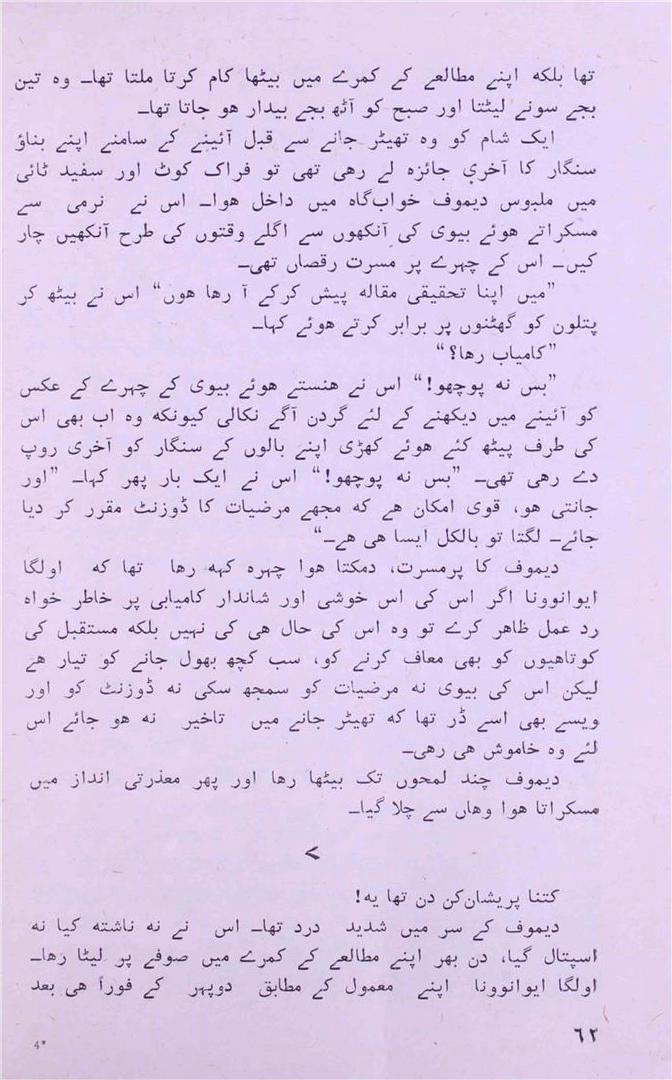 تھا بلکہ اپنے مطالعے کے کمرے میں بیٹھا کام کرتا ملتا تھا۔ وہ تین
بجے سونے لیٹتا اور صبح کو آٹھ بجے بیدار ھو جاتا تھا۔
ایک شام کو وہ تھیٹر جانے سے قبل آئینے کے سامنے اپنے بناؤ
سنگار کا آخری جائزہ لے رھی تھی تو فراک کوٹ اور سفید ٹائی
میں ملبوس دیموف خواب‌گاہ میں داخل ھوا۔ اس نے نرمی سے
مسکراتے ھوئے بیوی کی آنکھوں سے اگلے وقتوں کی طرح آنکھیں چار
کیں۔ اس کے چہرے پر مسرت رقصاں تھی۔
”میں اپنا تحقیقی مقالہ پیش کرکے آ رھا ھوں“ اس نے بیٹھ کر
پتلون کو گھٹنوں پر برابر کرتے ھوئے کہا۔
”کامیاب رھا؟“
”بس نہ پوچھو!“ اس نے ھنستے ھوئے بیوی کے چہرے کے عکس
کو آئینے میں دیکھنے کے لئے گردن آگے نکالی کیونکہ وہ اب بھی اس
کی طرف پیٹھ کئے ھوئے کھڑی اپنے بالوں کے سنگار کو آخری روپ
دے رھی تھی۔ ”بس نہ پوچھو!“ اس نے ایک بار پھر کہا۔ ”اور
جانتی ھو، قوی امکان ھے کہ مجھے مرضیات کا ڈوزنٹ مقرر کر دیا
جائے۔ لگتا تو بالکل ایسا ھی ھے۔“
دیموف کا پرمسرت، دمکتا ھوا چہرہ کہہ رھا تھا کہ اولگا
ایوانوونا اگر اس کی اس خوشی اور شاندار کامیابی پر خاطر خواہ
رد عمل ظاھر کرے تو وہ اس کی حال ھی کی نہیں بلکہ مستقبل کی
کوتاھیوں کو بھی معاف کرنے کو، سب کچھ بھول جانے کو تیار ھے
لیکن اس کی بیوی نہ مرضیات کو سمجھ سکی نہ ڈوزنٹ کو اور
ویسے بھی اسے ڈر تھا کہ تھیٹر جانے میں تاخیر نہ ھو جائے اس
لئے وہ خاموش ھی رھی۔
دیموف چند لمحوں تک بیٹھا رھا اور پھر معذرتی انداز میں
مسکراتا ھوا وھاں سے چلا گیا۔
۷
کتنا پریشان‌کن دن تھا یہ!
دیموف کے سر میں شدید درد تھا۔ اس نے نہ ناشتہ کیا نہ
اسپتال گیا، دن بھر اپنے مطالعے کے کمرے میں صوفے پر لیٹا رھا۔
اولگا ایوانوونا اپنے معمول کے مطابق دوپہر کے فوراً ھی بعد
۶۲
4*